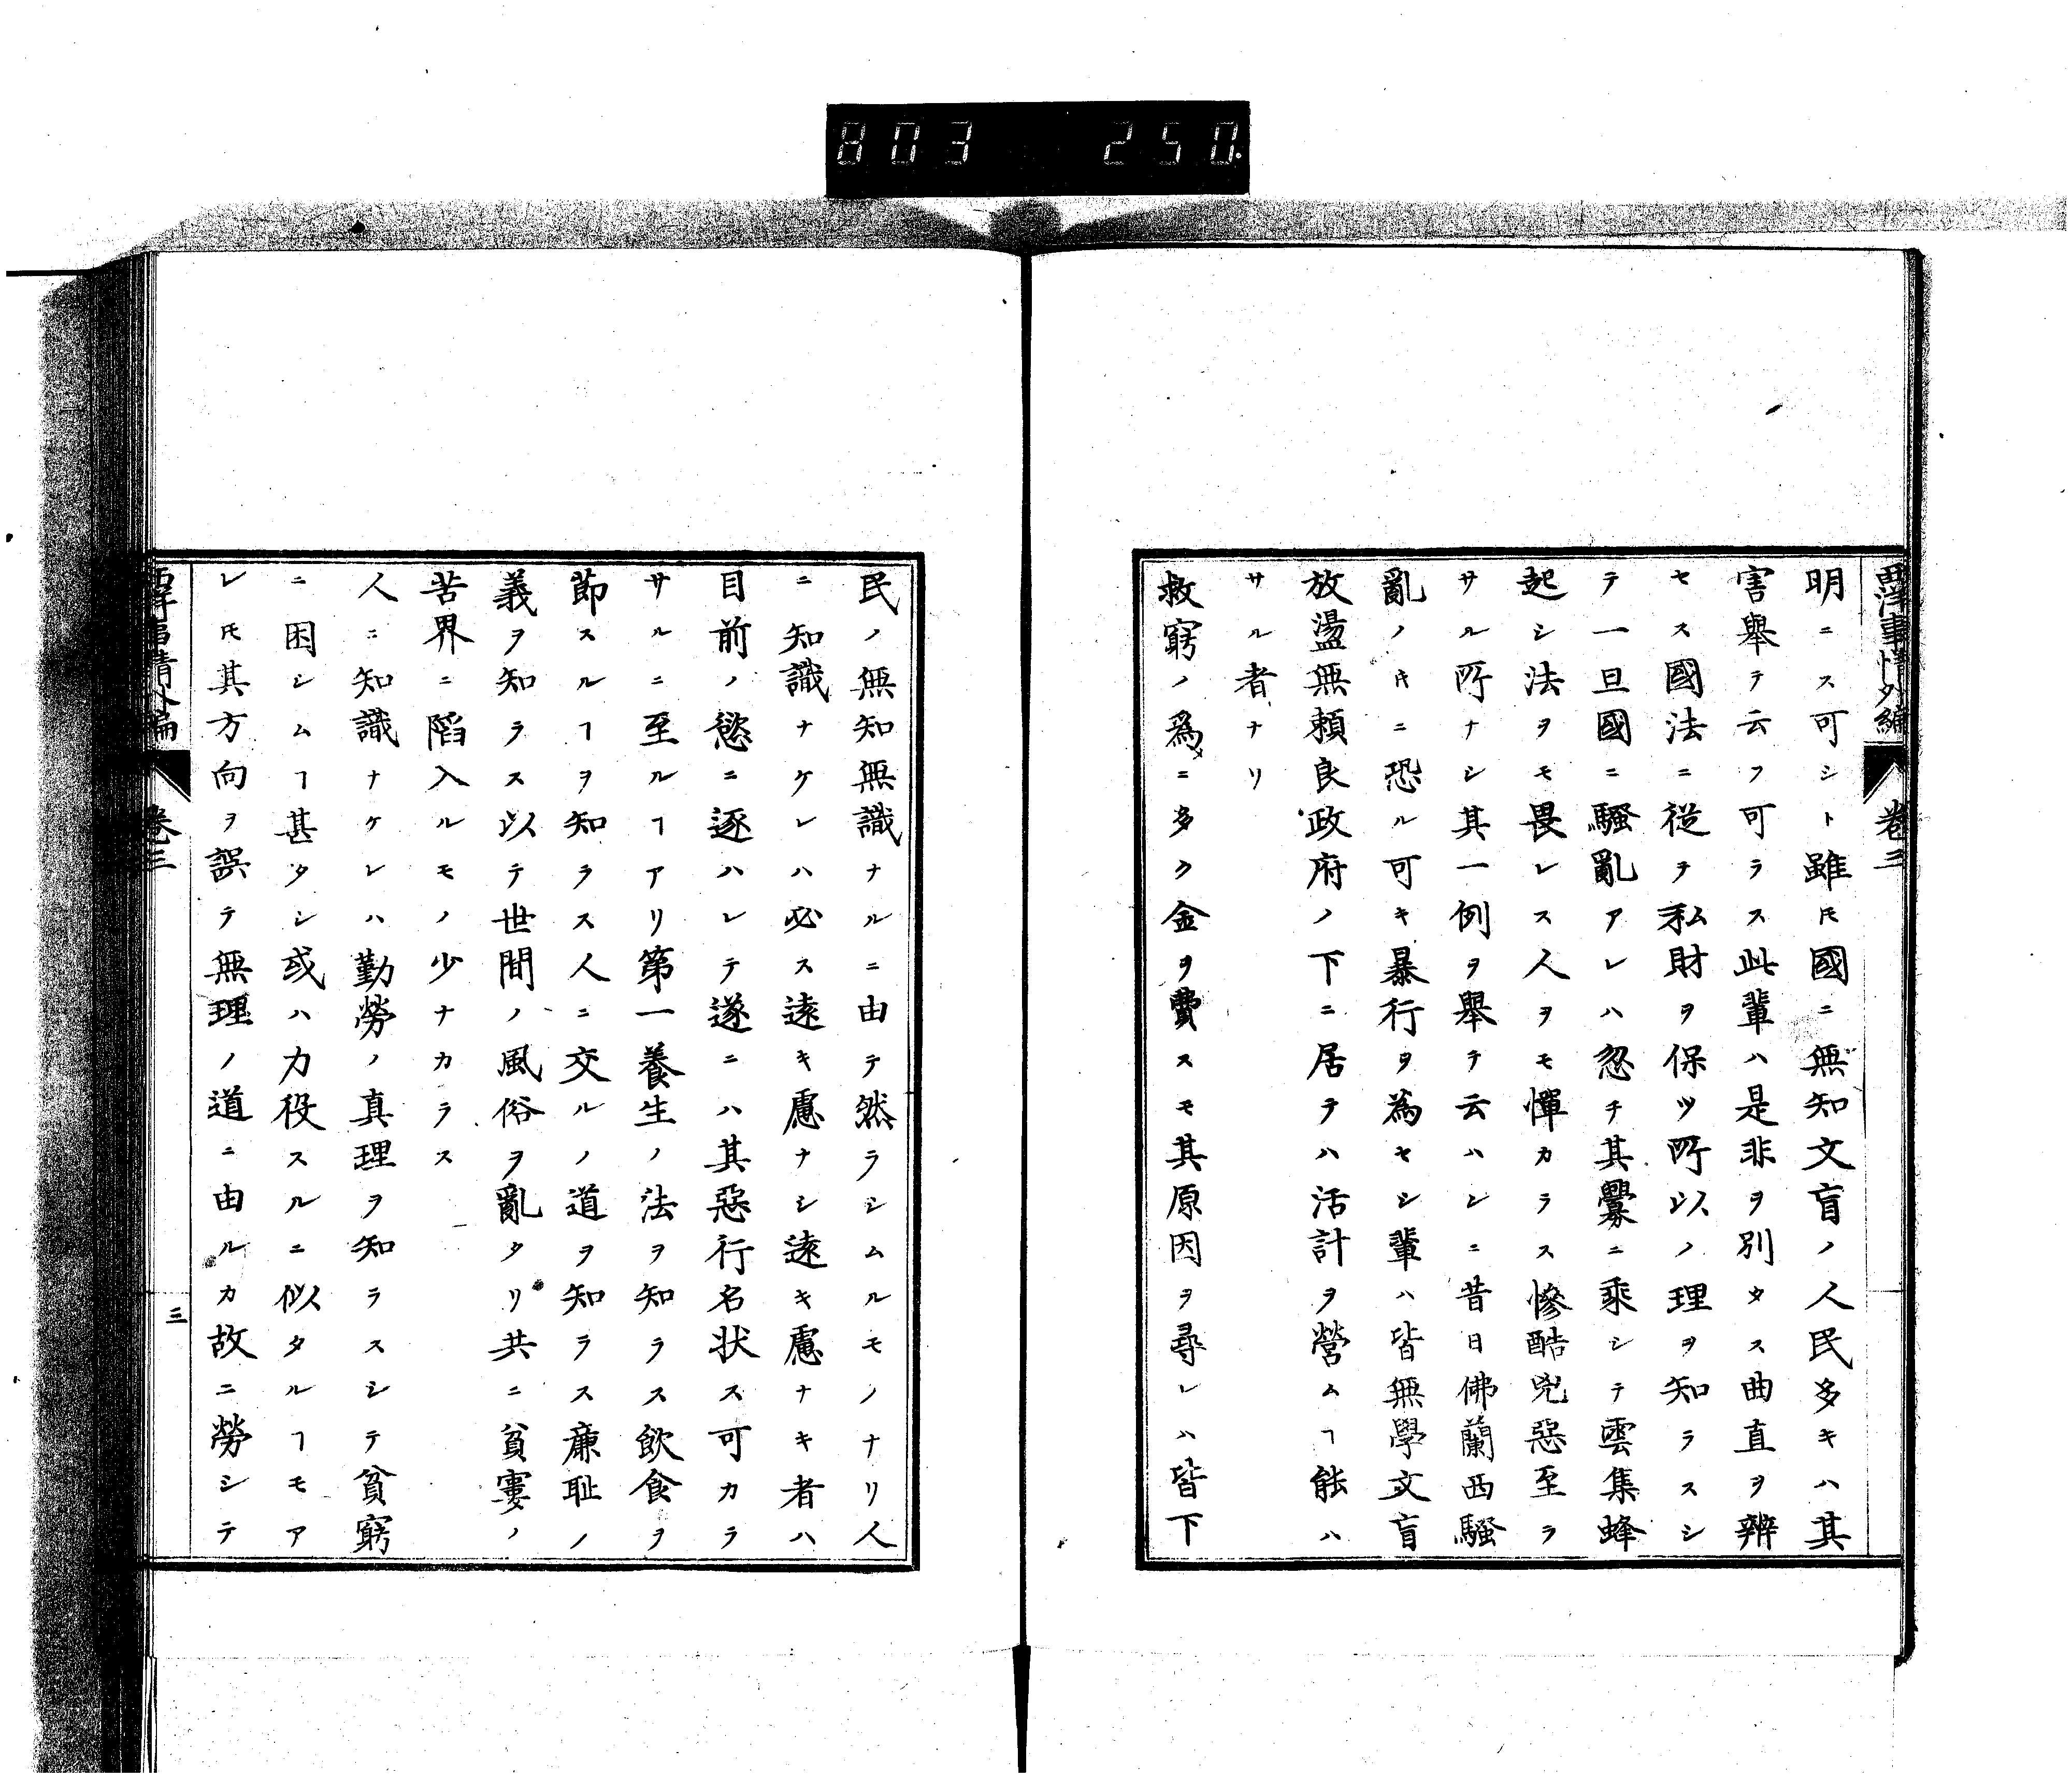 803 250.
西洋事情外編 卷三
明ニス可シト雖𪜈國ニ無知文盲ノ人民多キハ其
害舉テ云フ可ラス此輩ハ是非ヲ別タス曲直ヲ辨
セス國法ニ從テ私財ヲ保ツ所以ノ理ヲ知ラスシ
テ一旦國ニ騷亂アレハ忽チ其釁ニ乘シテ雲集蜂
起シ法ヲモ畏レス人ヲモ憚カラス慘酷兇惡至ラ
サル所ナシ其一例ヲ舉テ云ハンニ昔日佛蘭西騷
亂ノ𪜈ニ恐ル可キ暴行ヲ為セシ輩ハ皆無學文盲
放盪無頼良政府ノ下ニ居テハ活計ヲ營ムヿ能ハ
サル者ナリ
救窮ノ爲ニ多ク金ヲ費スモ其原因ヲ尋レハ皆下
民ノ無知無識ナルニ由テ然ラシムルモノナリ人
ニ知識ナケレハ必ス遠キ慮ナシ遠キ慮ナキ者ハ
目前ノ慾ニ逐ハレテ遂ニハ其惡行名状ス可カラ
サルニ至ルヿアリ第一養生ノ法ヲ知ラス飲食ヲ
節スルヿヲ知ラス人ニ交ルノ道ヲ知ラス廉耻ノ
義ヲ知ラス以テ世間ノ風俗ヲ亂タリ共ニ貧寠ノ
苦界ニ陷入ルモノ少ナカラス
人ニ知識ナケレハ勤勞ノ真理ヲ知ラスシテ貧窮
ニ困シムヿ甚タシ或ハ力役スルニ似タルヿモア
レ𪜈其方向ヲ誤テ無理ノ道ニ由ルカ故ニ勞シテ
西洋事情外編 卷三 三